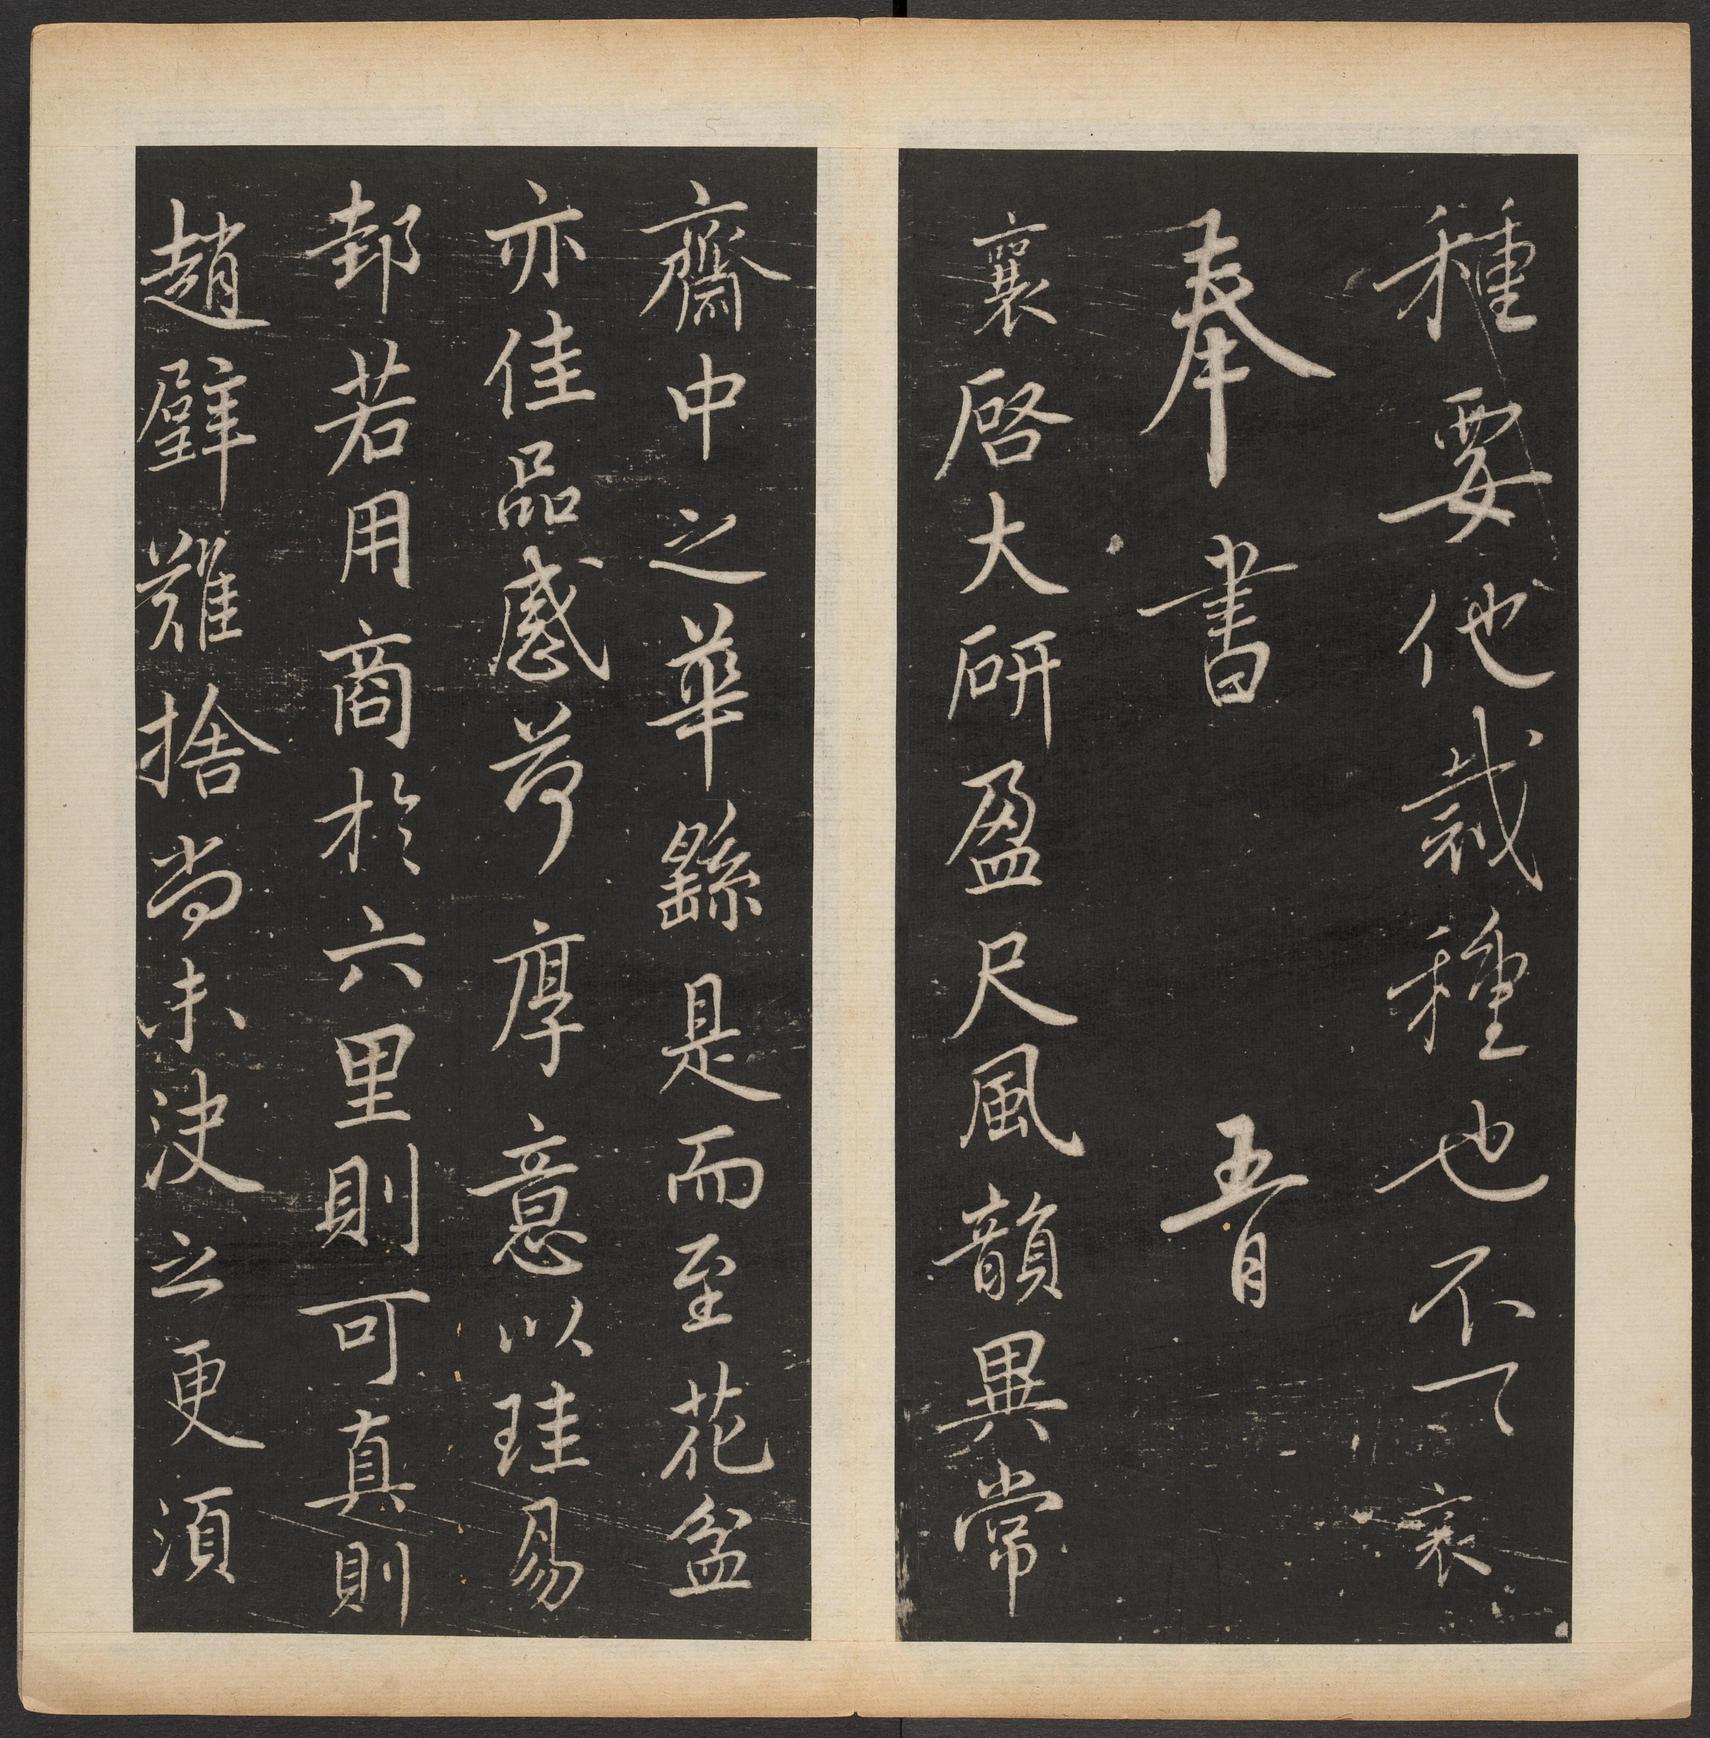 種要他栽種也不一襄
奉書 五月
襄啓大研盈尺風韻異常
齋中之華繇是而至花盆
亦佳品感荷厚意以珪易
邽若用商於六里則可真則
趙璧難捨尚未決之更須